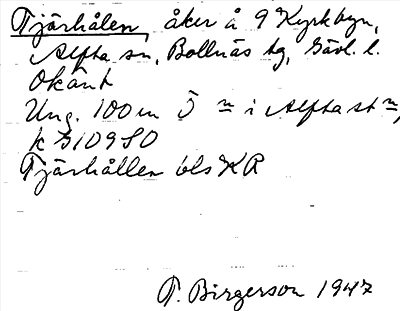 Tjärhålen, åker å 9 Kyrkbyn,
Alfta sn, Bollnäs tg, Gävl. l.
Okänt
Ung. 100 m Ö m i Alfta st m,
k 510980
Tjärhållen bls KR
T. Birgerson 1947